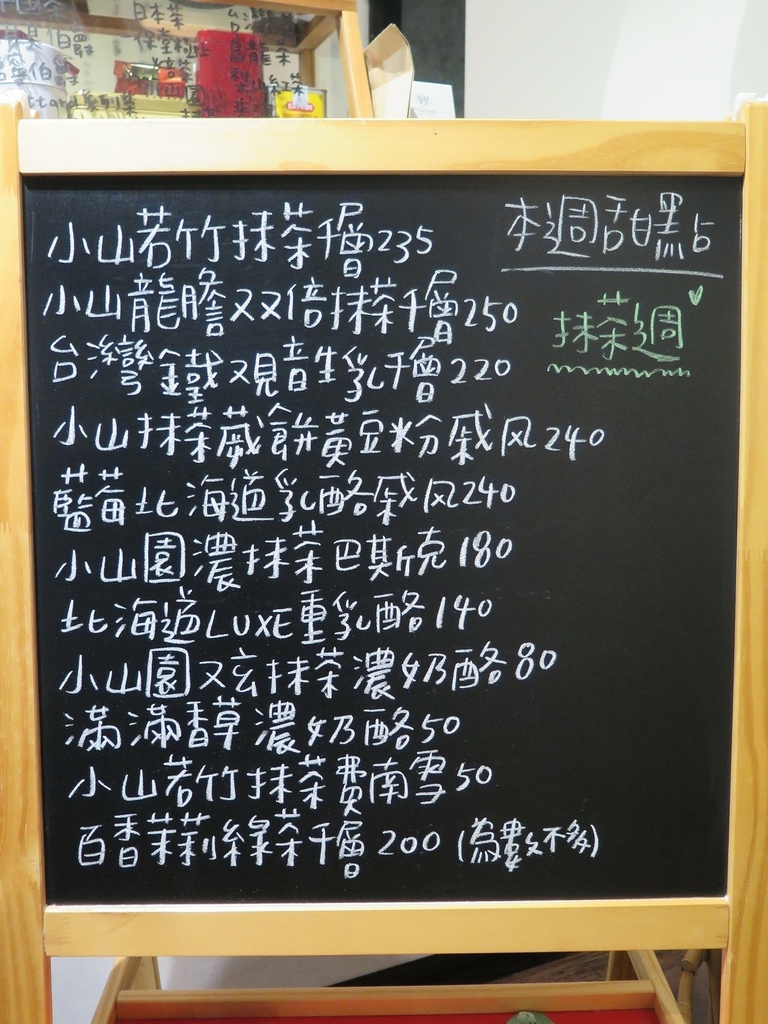 本週甜點
抹茶週
小山若竹抹茶千層235
小山龍膽双倍抹茶千層250
台灣鐵观音生乳千層220
小山抹茶蕨餅黃豆粉戚风240
藍莓北海道乳酪戚风240
小山園濃抹茶巴斯克180
北海道LUXE重乳酪140
小山園又玄抹茶濃奶酪80
滿滿香草濃奶酪50
小山若竹抹茶費南雪50
百香茉莉綠茶千層200(為數不多)